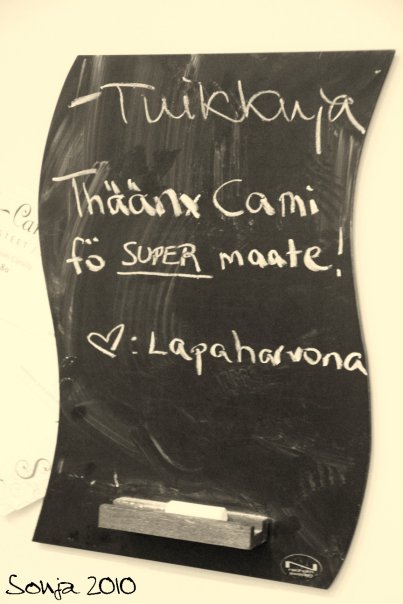 -Tuikkuja
Thäänx Cami
fö SUPER maate!
♡: Lapaharvona
Sonja 2010